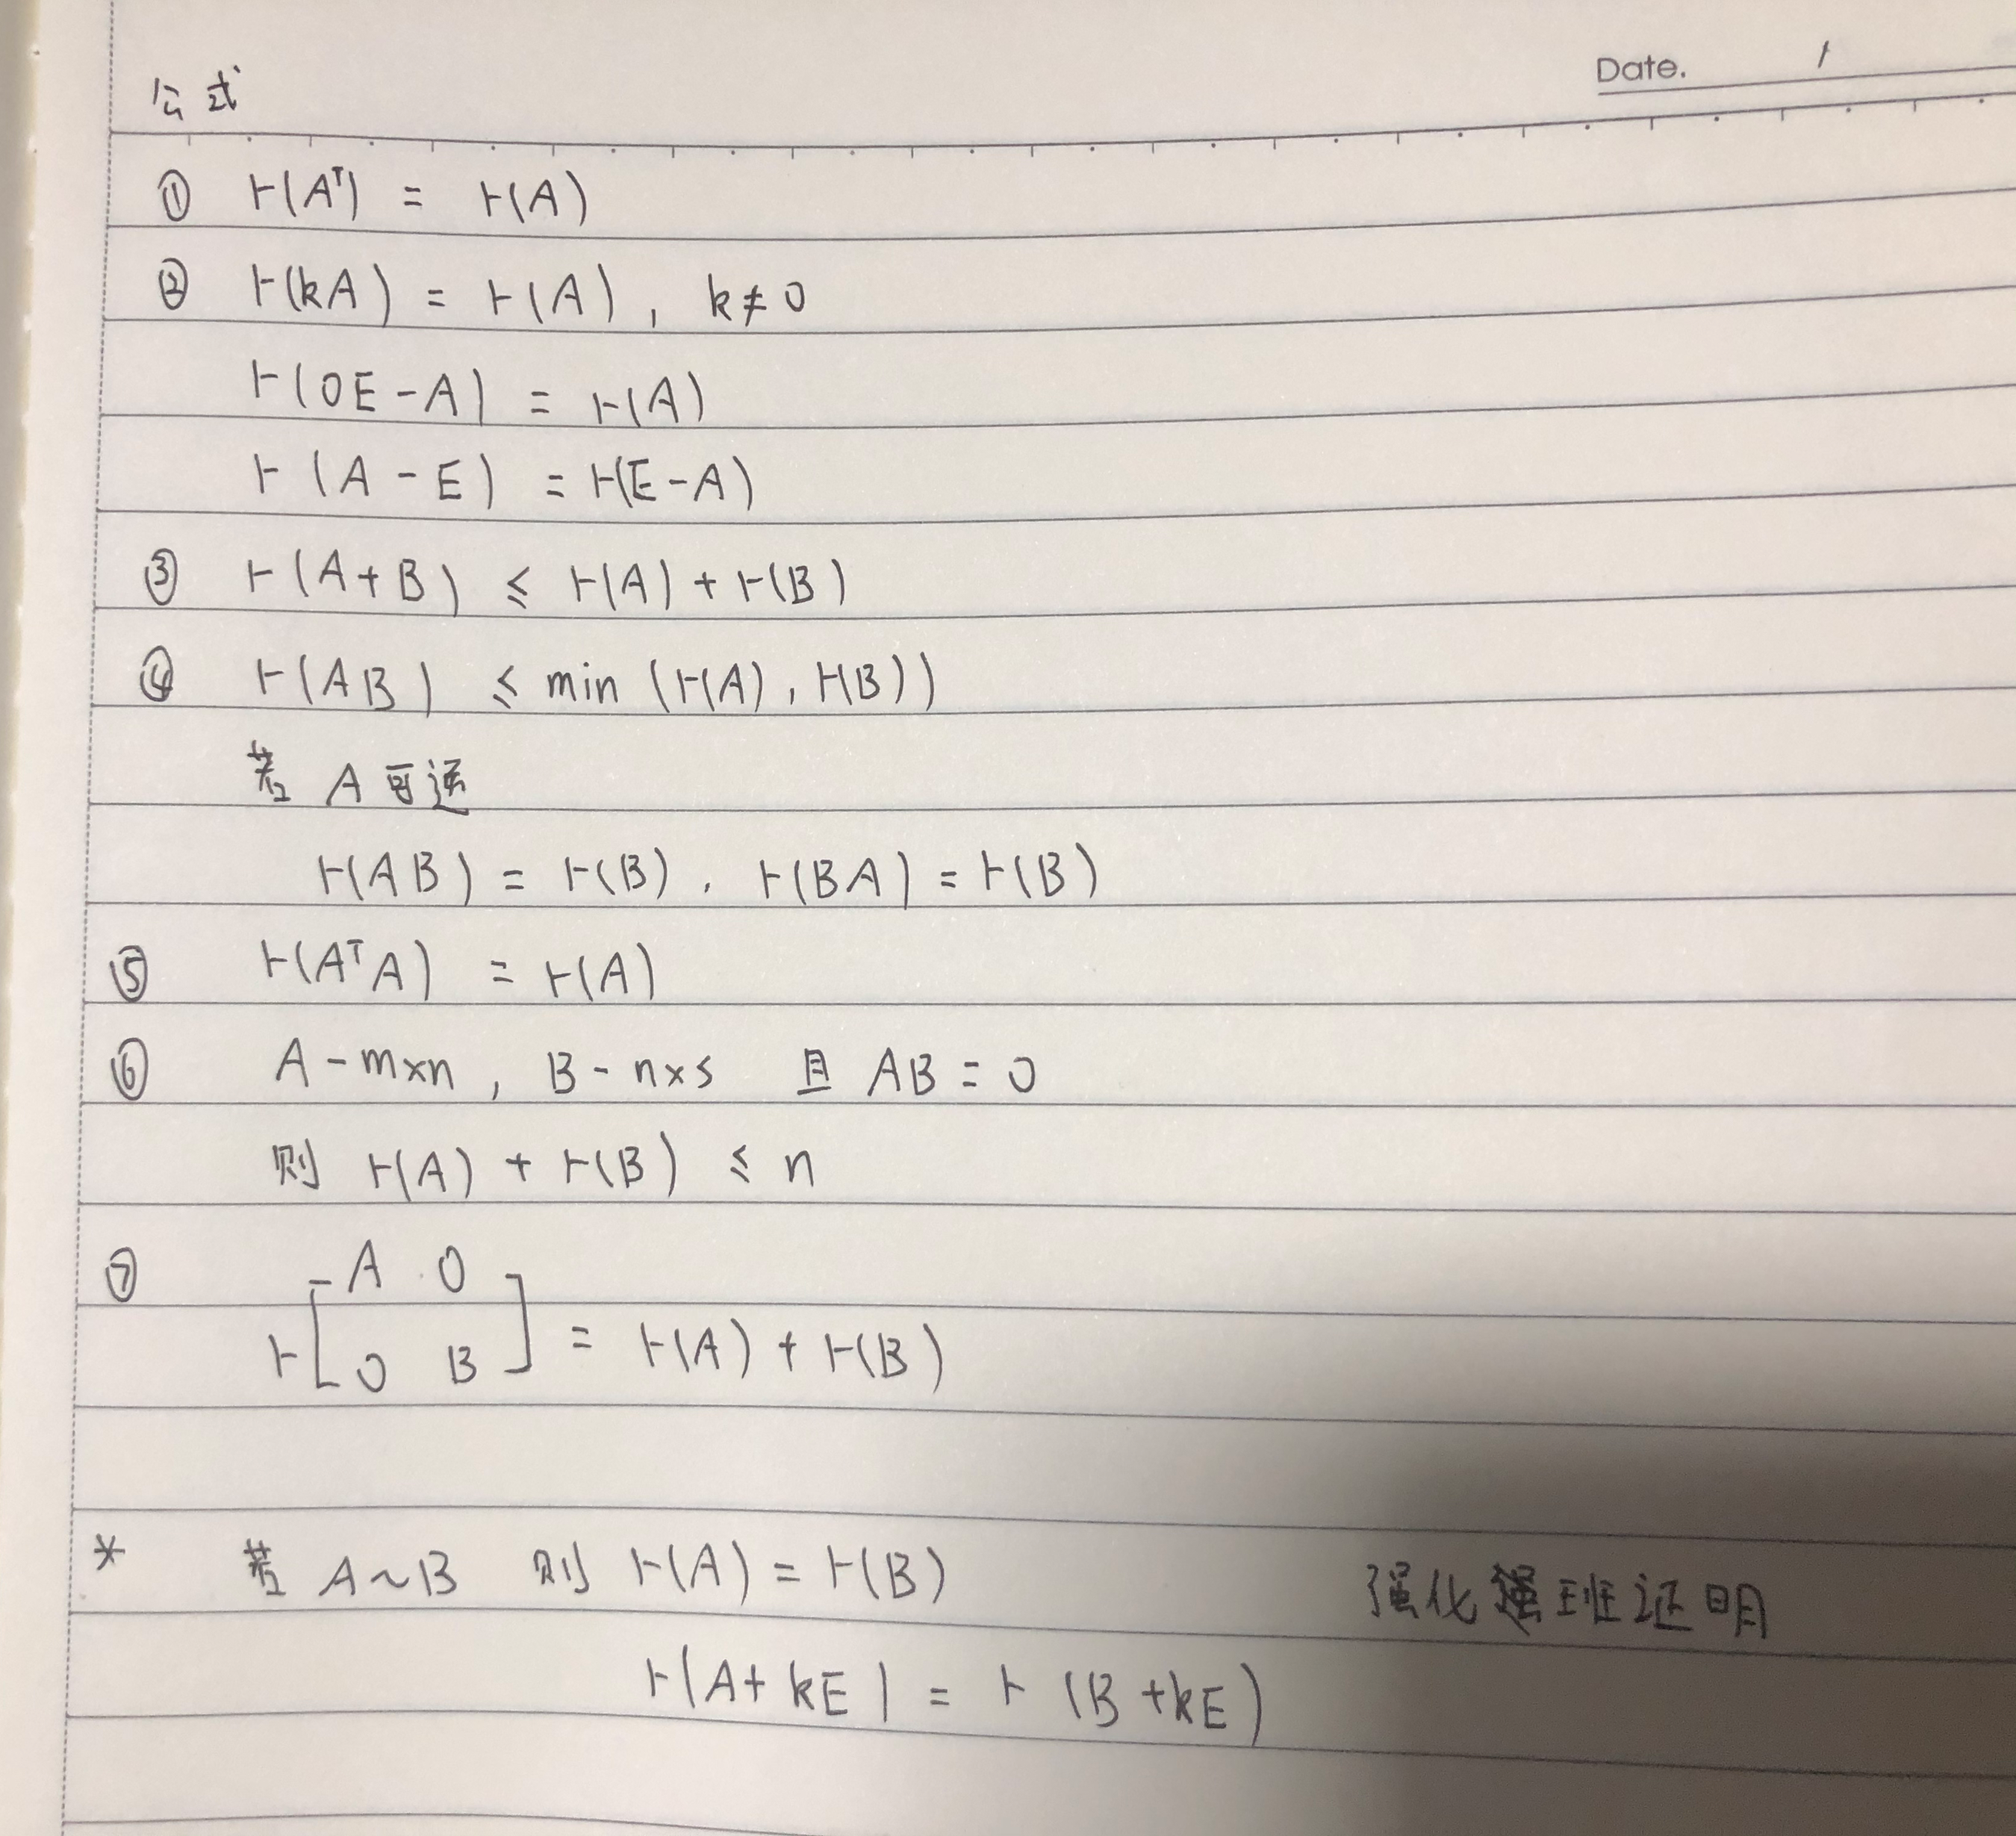 Date. /
公式
① r(Aᵀ) = r(A)
② r(kA) = r(A), k≠0
r(0E-A) = r(A)
r(A-E) = r(E-A)
③ r(A+B) ≤ r(A)+r(B)
④ r(AB) ≤ min (r(A), r(B))
若 A 可逆
r(AB) = r(B), r(BA) = r(B)
⑤ r(AᵀA) = r(A)
⑥ A-m×n, B-n×s 且 AB=0
则 r(A) + r(B) ≤ n
⑦ A 0
r[0 B] = r(A) + r(B)
* 若 A~B 则 r(A) = r(B) 强化班证明
r(A+kE) = r(B+kE)